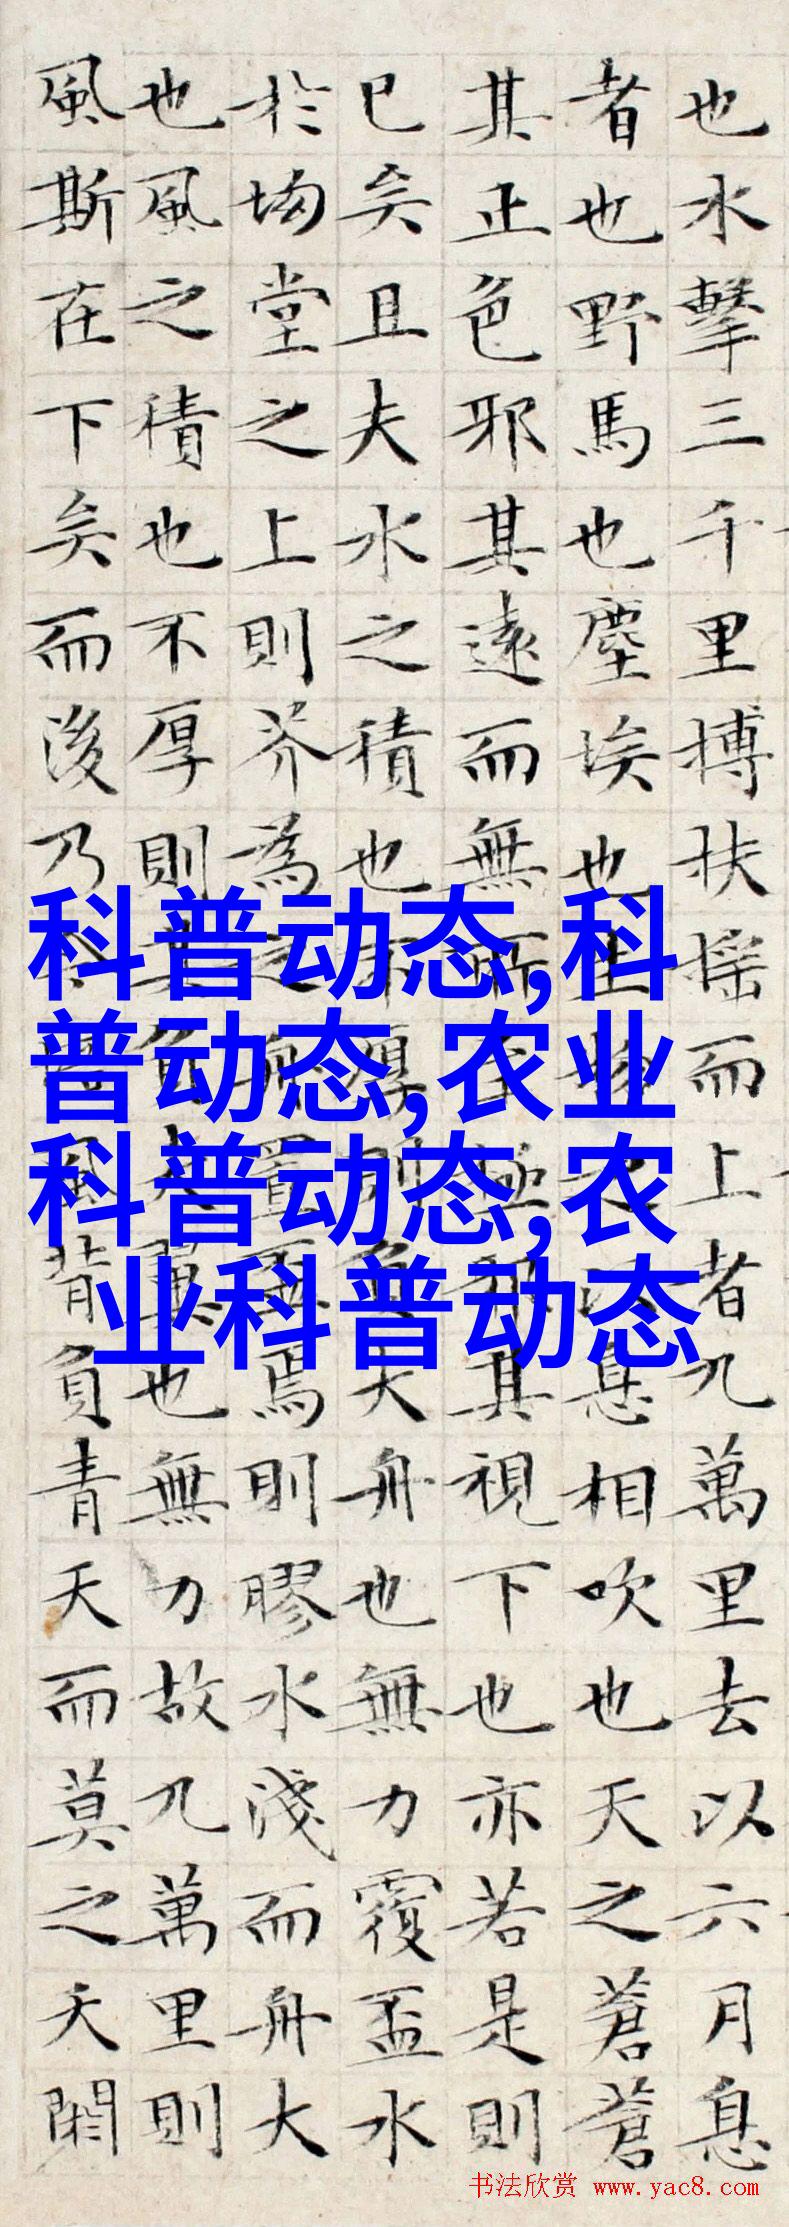 也水擊三千里搏扶摇而上者九萬里去以六月息
者也野馬也塵埃也生物以息相吹也天之蒼蒼
其正色邪其遠而無所至極邪其視下也亦若是則
已矣且夫水之積也不厚則負大舟也無力覆盃水
於坳堂之上則芥為之舟置盃焉則膠水淺而舟大
也風之積也不厚則其負大翼也無力故九萬里則
風斯在下矣而後乃今風背負青天而莫之夭閼
科普动态,科
普动态,农业
科普动态,农
业科普动态
书法欣赏 www.yac8.com